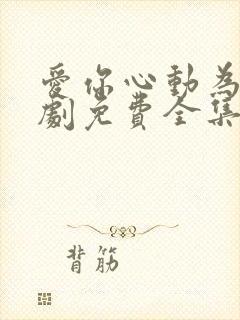 愛你心動為
劇免費全集
背筋